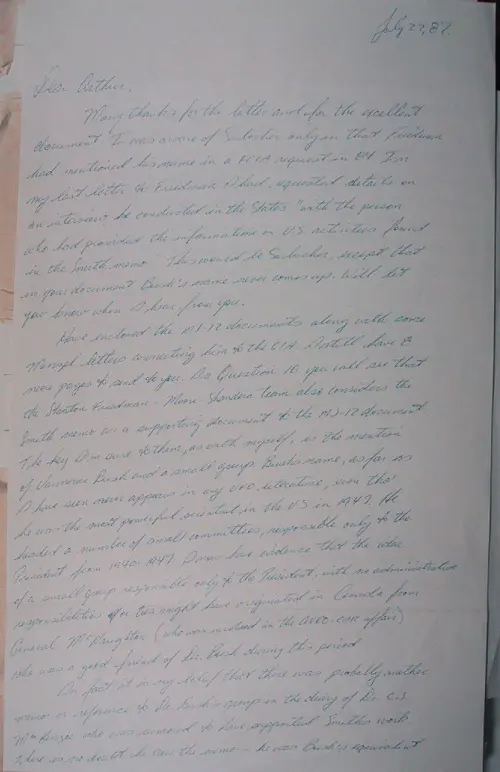 July 27, 87.
Dear Arthur,
Many thanks for the letter and for the excellent
document. I was aware of Sarbacher only in that Friedman
had mentioned his name in a request in 84. In
my last letter to Friedman I had requested details on
an interview he conducted in the States "with the person
who had provided the information on U.S activities found
in the Smith memo. This would be Sarbacher, except that
in your document Bush's name never comes up. Will let
you know when I hear from you.
Have enclosed the MJ-12 documents along with some
letters connecting him to the CIA. I still have
more pages to send to you. Do Question it. you will see that
the Stanton Friedman - Moore - Shandera team also considers the
Smith memo as a supporting document to the MJ-12 document.
The key I'm sure to them, as with myself, is the mention
of Vannevar Bush and a small group. Bush's name, as far as
I have seen never appears in any UFO literature, even tho'
he was the most powerful scientist in the US in 1947. He
headed a number of small committees, responsible only to the
President from 1940-1947. I now have evidence that the idea
of a small group responsible only to the President, with no administrative
responsibilities or ties might have originated in Canada from
General McNaughton (who was involved in the affair)
who was a good friend of Dr. Bush during this period.
In fact it is my belief that there was probably another
memo or reference to Dr Bush's group in the diary of Dr. C.J
MacKenzie who was rumored to have supported Smith's work
There is no doubt he saw the memo - he was Bush's equivalent